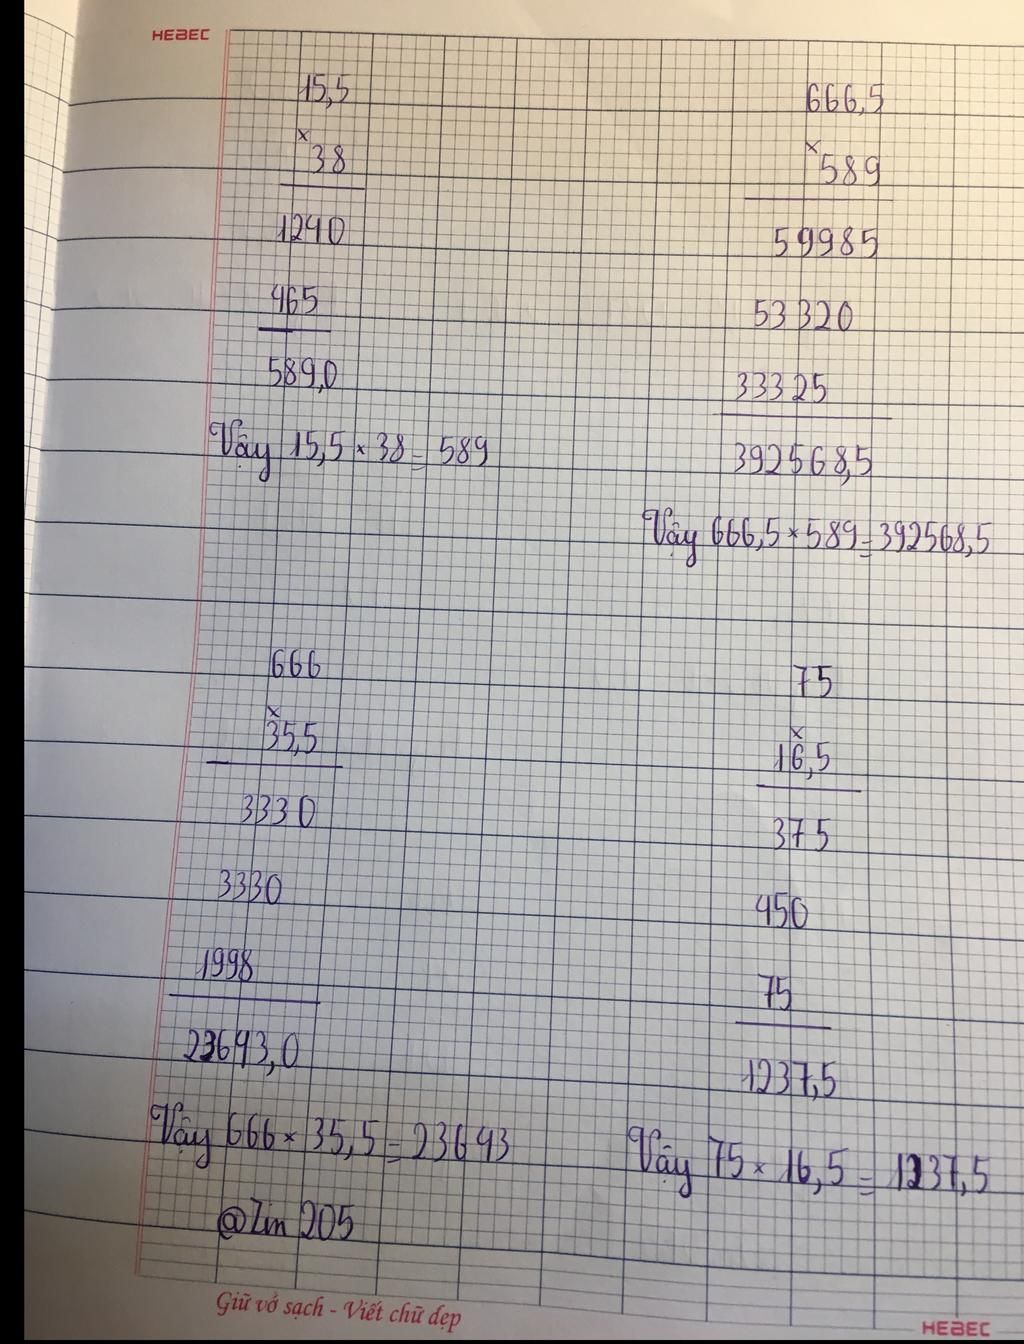 HEBEC
15,5
×
38
1240
465
589,0
Vậy 15,5 × 38 = 589
666,5
×
589
59985
53320
33325
392568,5
Vậy 666,5 × 589 = 392568,5
666
×
35,5
3330
3330
1998
23643,0
Vậy 666 × 35,5 = 23643
75
×
16,5
375
450
75
1237,5
Vậy 75 × 16,5 = 1237,5
@Zin 205
Giữ vở sạch - Viết chữ đẹp
HEBEC